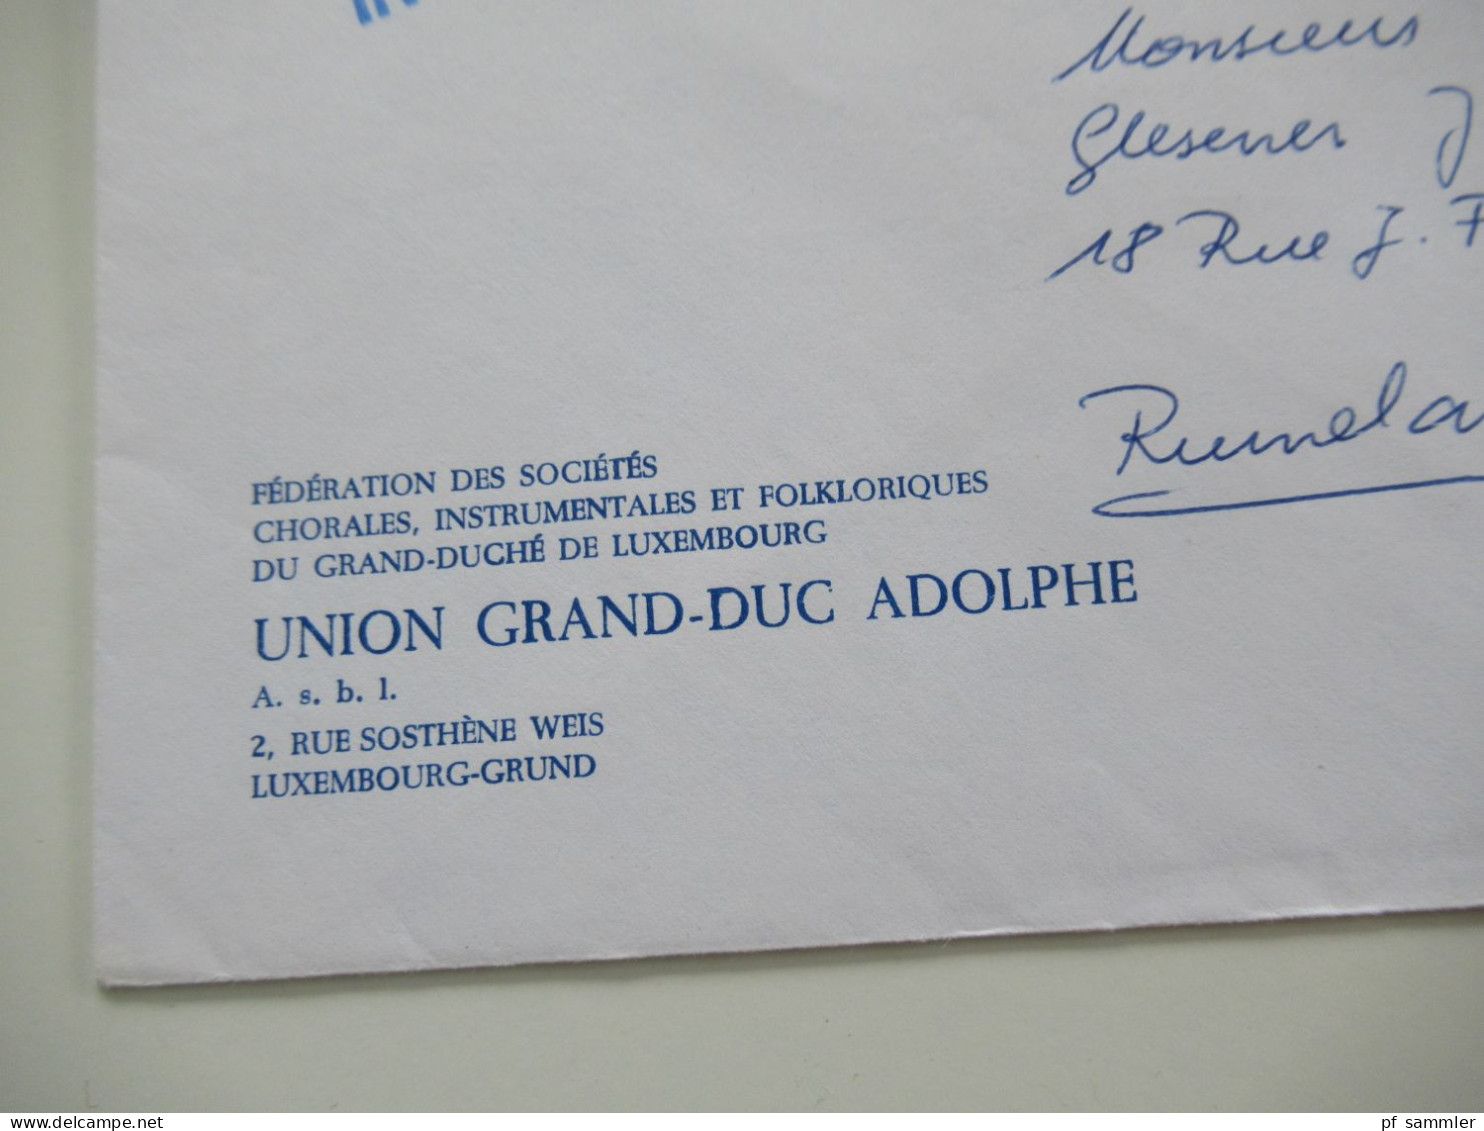 Monsieur
Glesener J
18 Rue J. F
FÉDÉRATION DES SOCIÉTÉS
CHORALES, INSTRUMENTALES ET FOLKLORIQUES
DU GRAND-DUCHÉ DE LUXEMBOURG
UNION GRAND-DUC ADOLPHE
A. s. b. l.
2, RUE SOSTHÈNE WEIS
LUXEMBOURG-GRUND
delcampe.net
pf sammler